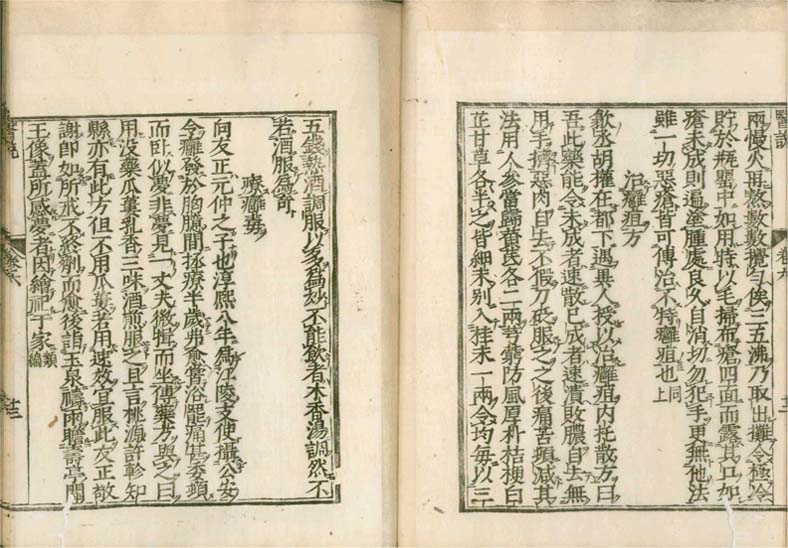 兩慢火再熬數數攪勻俟三五沸乃取出攤令極冷
貯於瓶罌中如用時以毛掃布瘡四面而露其口如
瘡未成則遍塗腫處良久自消切勿犯手更無他法
雖一切惡瘡皆可傅治不特癰疽也上同
治癰疽方
歙丞胡權在都下遇異人授以治癰疽內托散方曰
吾此藥能令未成者速散已成者速潰敗膿自去無
用手擠惡肉自去不假刀砭服之之後痛苦頓減其
法用人參當歸黃芪各二兩芎藭防風厚朴桔梗白
芷甘草各半之皆細末別入桂末一兩令均每以三
五錢熱酒調服以多為妙不能飲者木香湯調然不
若酒服為奇
療癰毒
向友正元仲之子也淳熙八年為江陵支使攝公安
令癰發於胸臆間拯療半歲弗愈嘗浴罷痛甚委頓
而臥似夢非夢見一丈夫微揖而坐傳藥方與之曰
用沒藥瓜蔞乳香三味酒煎服之且言桃源許軫知
縣亦有此方但不用瓜蔞若用速效宜服此友正敬
謝即如所戒不終劑而愈後詣玉泉禱雨瞻壽亭關
王像蓋所感夢者因繪祀于家類編
醫說
卷六
十三